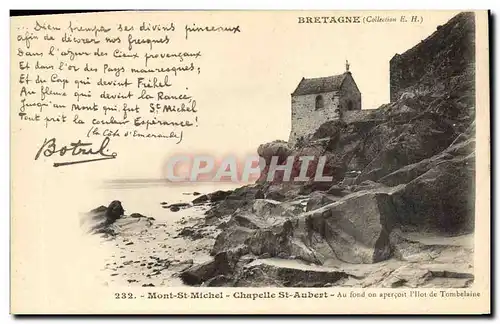 BRETAGNE (Collection E. H.)
Dieu trempa ses divins pinceaux
afin de décorer nos fresques
Dans l'azur des Cieux provençaux
Et dans l'or des Pays mauresques ;
Et du Cap qui devint Fréhel
Au fleuve qui devint la Rance,
Jusqu'au Mont qui fut St Michel
Tout prit la couleur Espérance !
(la Côte d'Emeraude)
Botrel
CPARAMA
232. - Mont-St-Michel - Chapelle St-Aubert - Au fond on aperçoit l'Ilot de Tombelaine